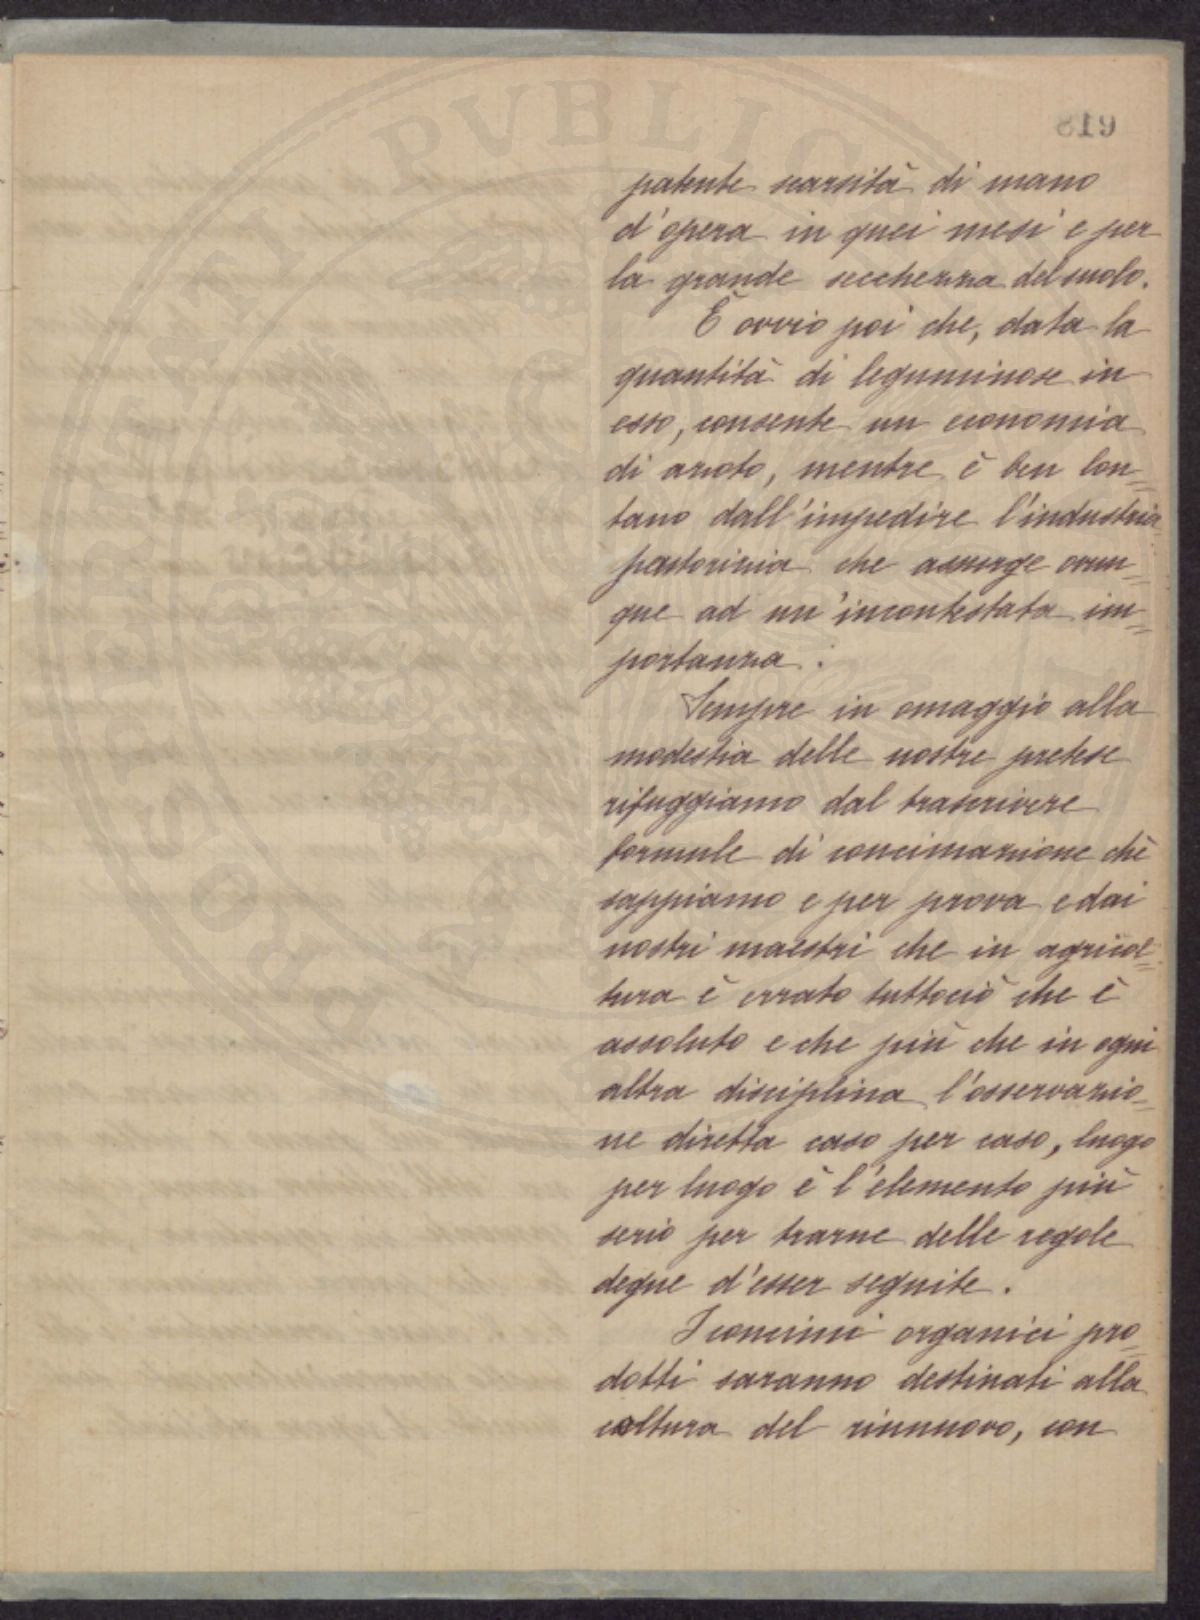 819
patente scarsità di mano
d'opera in quei mesi e per
la grande secchezza del suolo.
È ovvio poi che, data la
quantità di leguminose in
esso, consente un economia
di azoto, mentre è ben lon=
tano dall'impedire l'industria
pastorizia che assurge ovun=
que ad un'incontestata im=
portanza.
Sempre in omaggio alla
modestia delle nostre pretese
rifuggiamo dal trascrivere
formule di concimazione chè
sappiamo e per prova e dai
nostri maestri che in agricol=
tura è errato tuttociò che è
assoluto e che più che in ogni
altra disciplina l'osservazio=
ne diretta caso per caso, luogo
per luogo è l'elemento più
serio per trarne delle regole
degne d'esser seguite.
I concimi organici pro=
dotti saranno destinati alla
coltura del rinnuovo, con